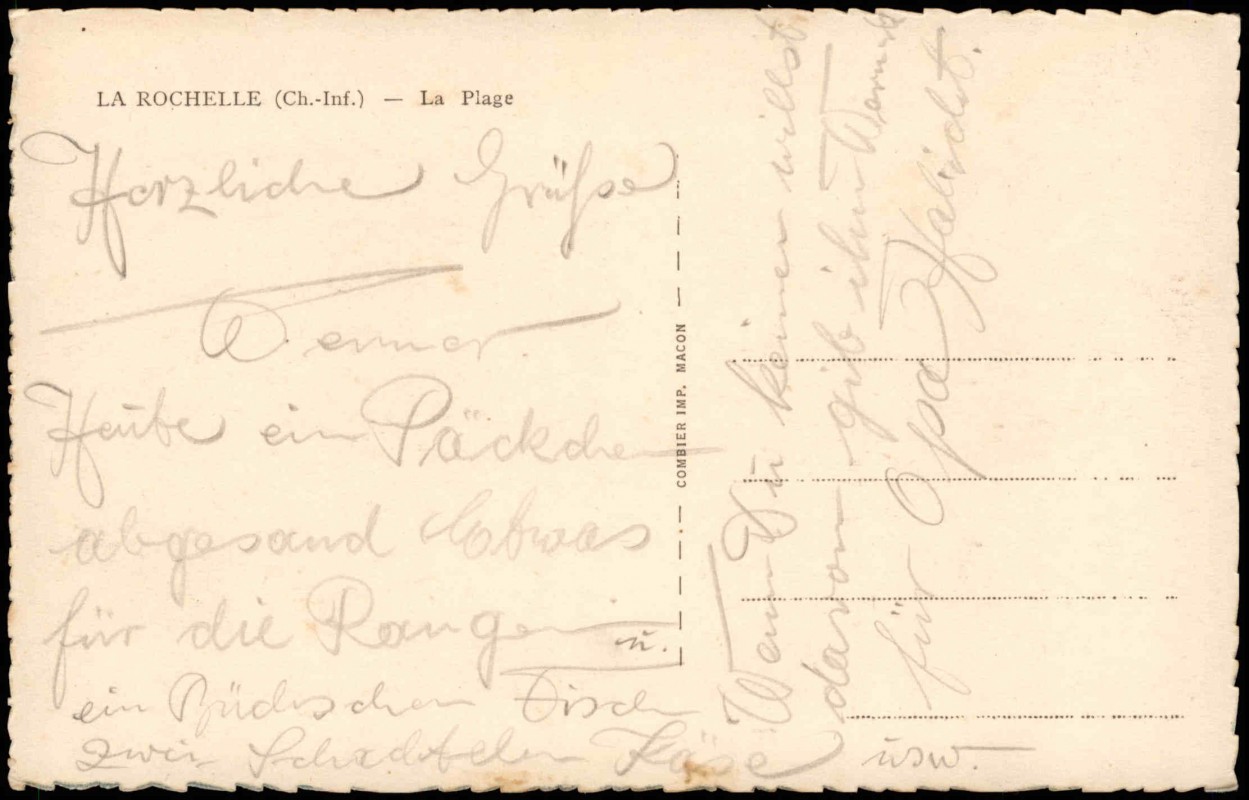 LA ROCHELLE (Ch.-Inf.) — La Plage
Herzliche Grüße
Werner
Heute ein Päckchen
abgesand Etwas
für die Rangen u.
ein Büchschen Fisch
zwei Schachteln Käse usw.
COMBIER IMP. MACON
Wenn Du keinen willst
davon gib ihn
für Opa